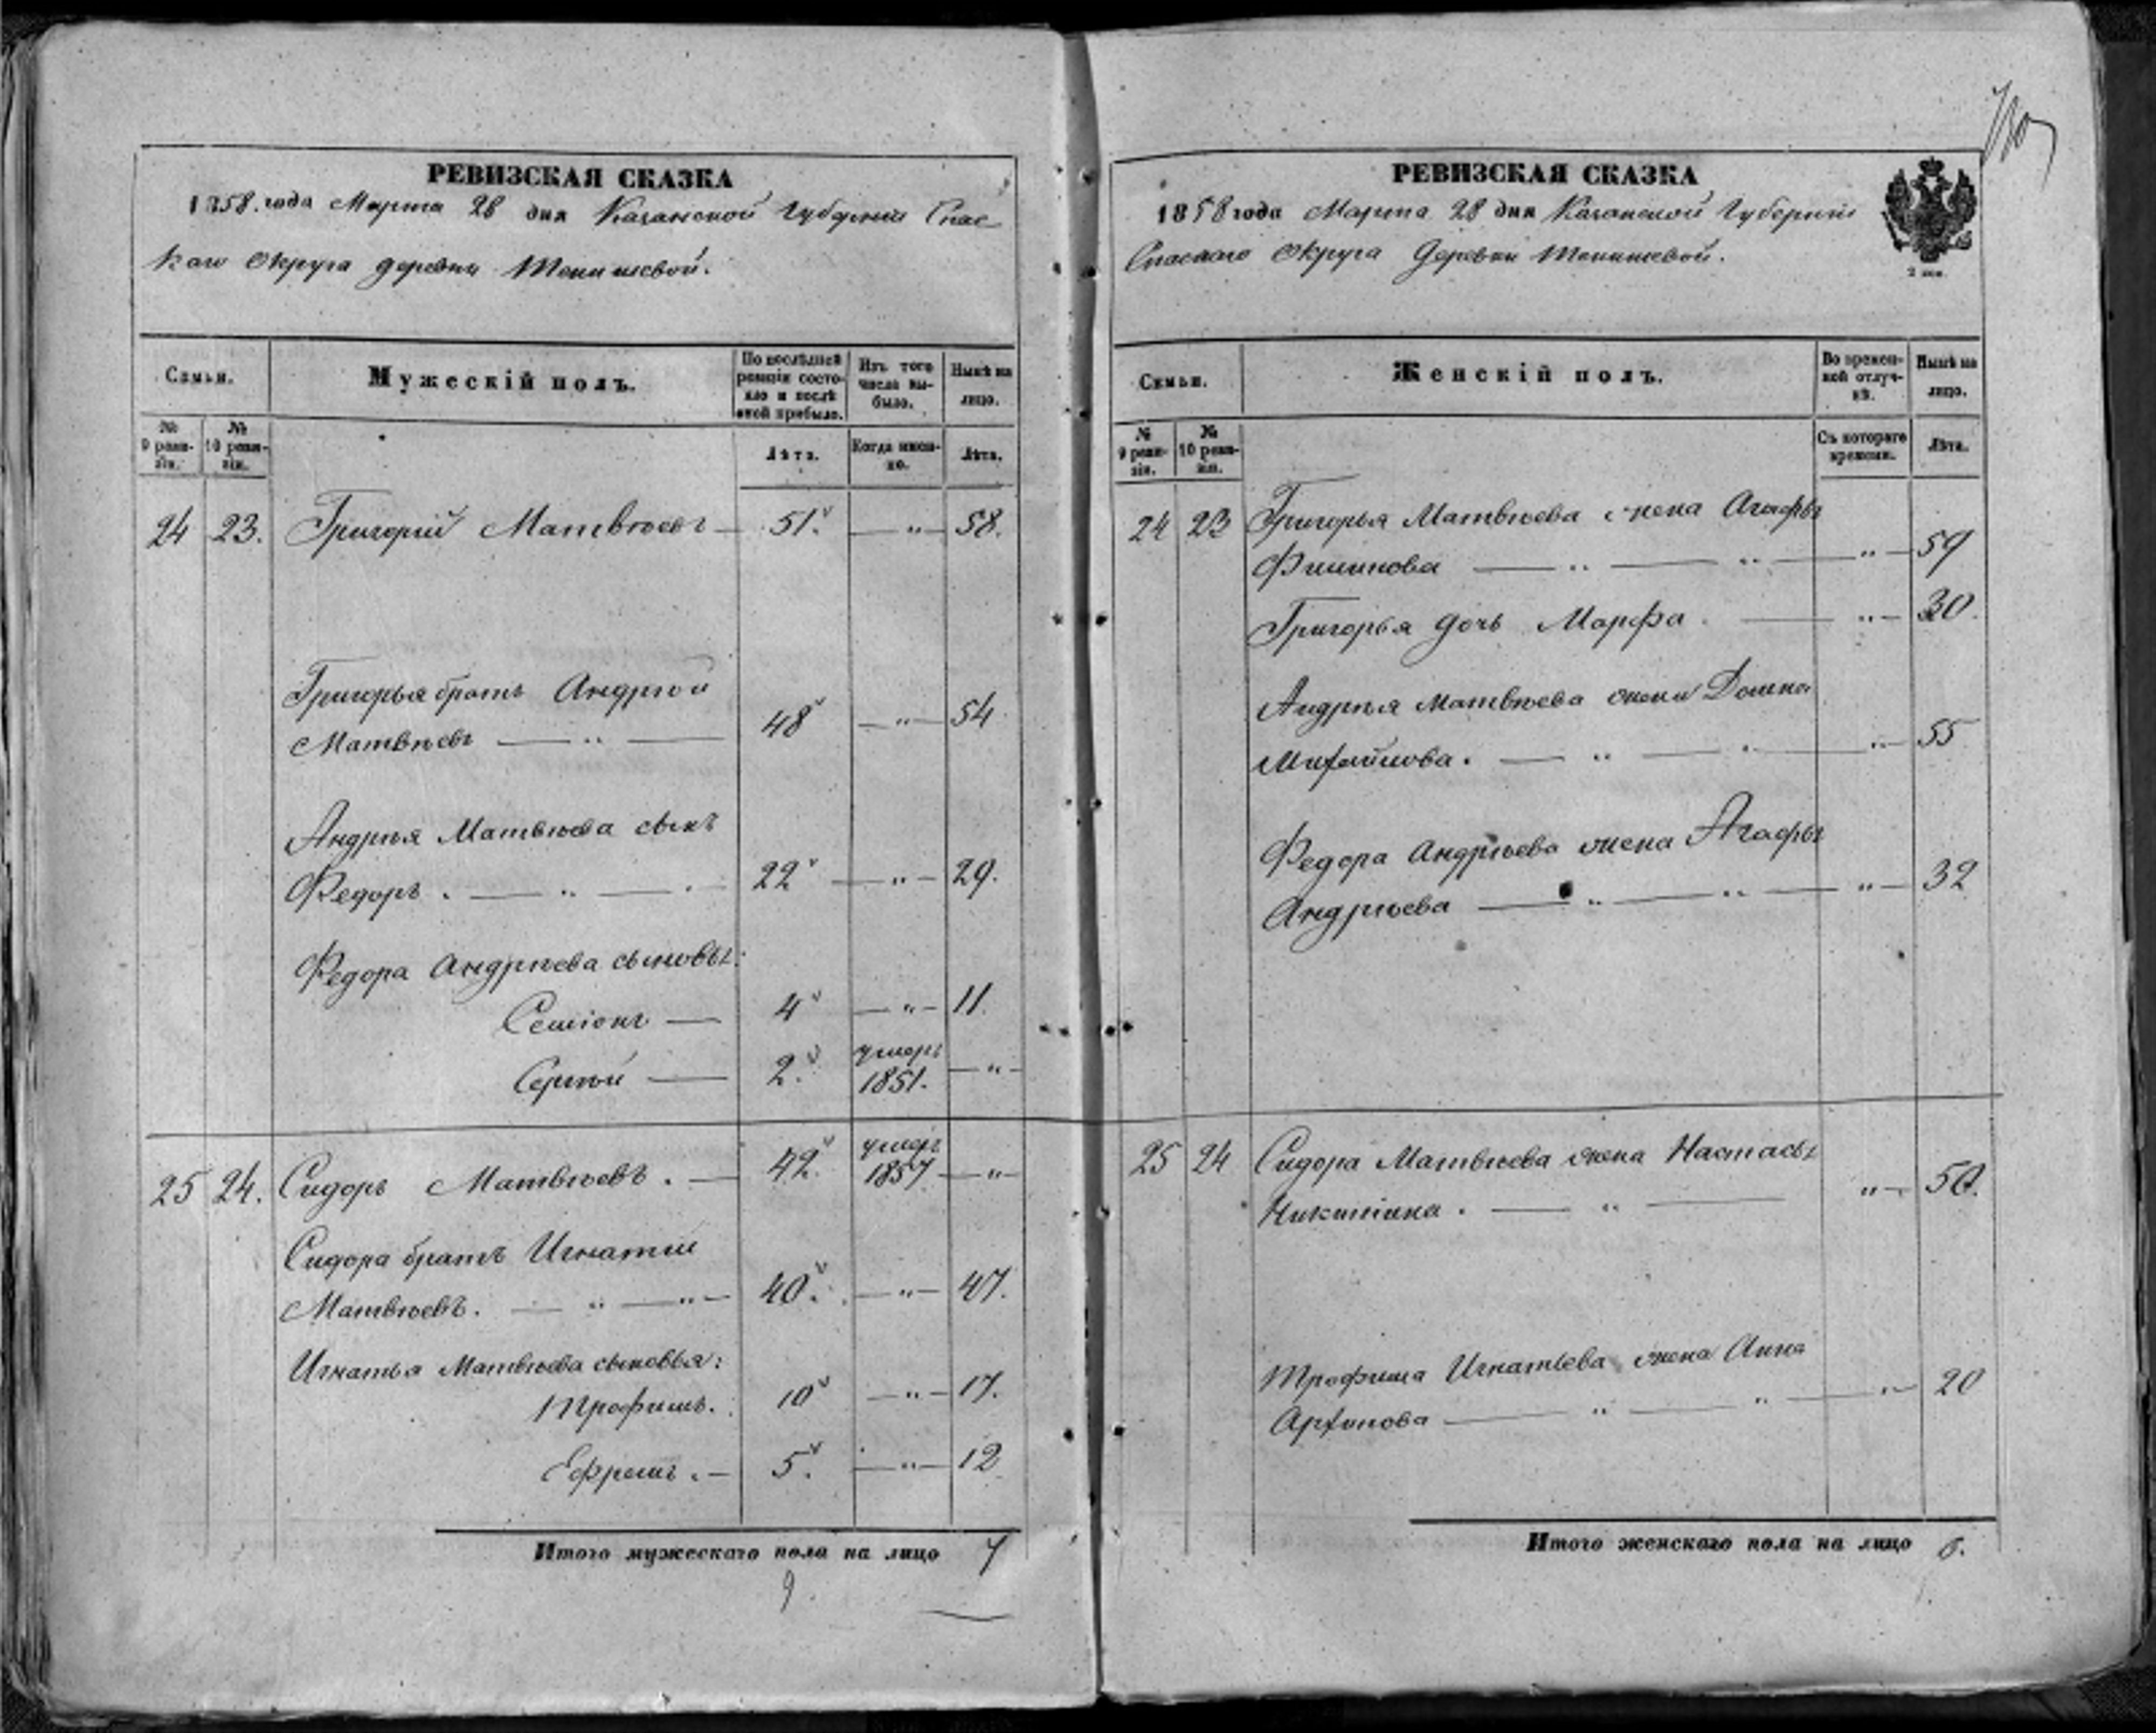 РЕВИЗСКАЯ СКАЗКА
1858. года Марта 28 дня Казанской Губерніи Спас
каго Округа деревни
Семьи.
Мужескій полъ.
По послѣдней ревизіи состояло и послѣ оной прибыло.
Изъ того числа выбыло.
Нынѣ на лицо.
№ 9 ревизіи.
№ 10 ревизіи.
Лѣта.
Когда именно.
Лѣта.
24 23. Григорій Матвѣевъ — 51. — „ — 58.
Григорья братъ Андрей
Матвѣевъ — „ — 48 — „ — 54
Андрея Матвѣева сынъ
Федоръ. — „ — 22 — „ — 29.
Федора Андрѣева сыновья:
Семіонъ — 4 — „ — 11.
Сергѣй — 2. умеръ 1851. — „ —
25 24. Сидоръ Матвѣевъ. — 42. умеръ 1857 — „ —
Сидора братъ Игнатій
Матвѣевъ. — „ — „ — 40. — „ — 47.
Игнатья Матвѣева сыновья:
Трофимъ. 10 — „ — 17.
Ефремъ. — 5. — „ — 12
Итого мужескаго пола на лицо 7
9.
РЕВИЗСКАЯ СКАЗКА
1858 года Марта 28 дня Казанской Губерніи
Спаскаго Округа Деревни
2 коп.
Семьи.
Женскій полъ.
Во временной отлучкѣ.
Нынѣ на лицо.
№ 9 ревизіи.
№ 10 ревизіи.
Съ котораго времени.
Лѣта.
24 23 Григорья Матвѣева жена Агафья
Филипова — „ — „ — „ — 59
Григорья дочь Марфа — „ — 30.
Андрея Матвѣева жена Домна
Михайлова. — „ — „ — 55
Федора Андрѣева жена Агафья
Андрѣева — „ — „ — „ — 32
25 24 Сидора Матвѣева жена Настасья
Никитина. — „ — „ — 50.
Трофима Игнатьева жена Анна
Архипова — „ — „ — „ — 20
Итого женскаго пола на лицо 6.